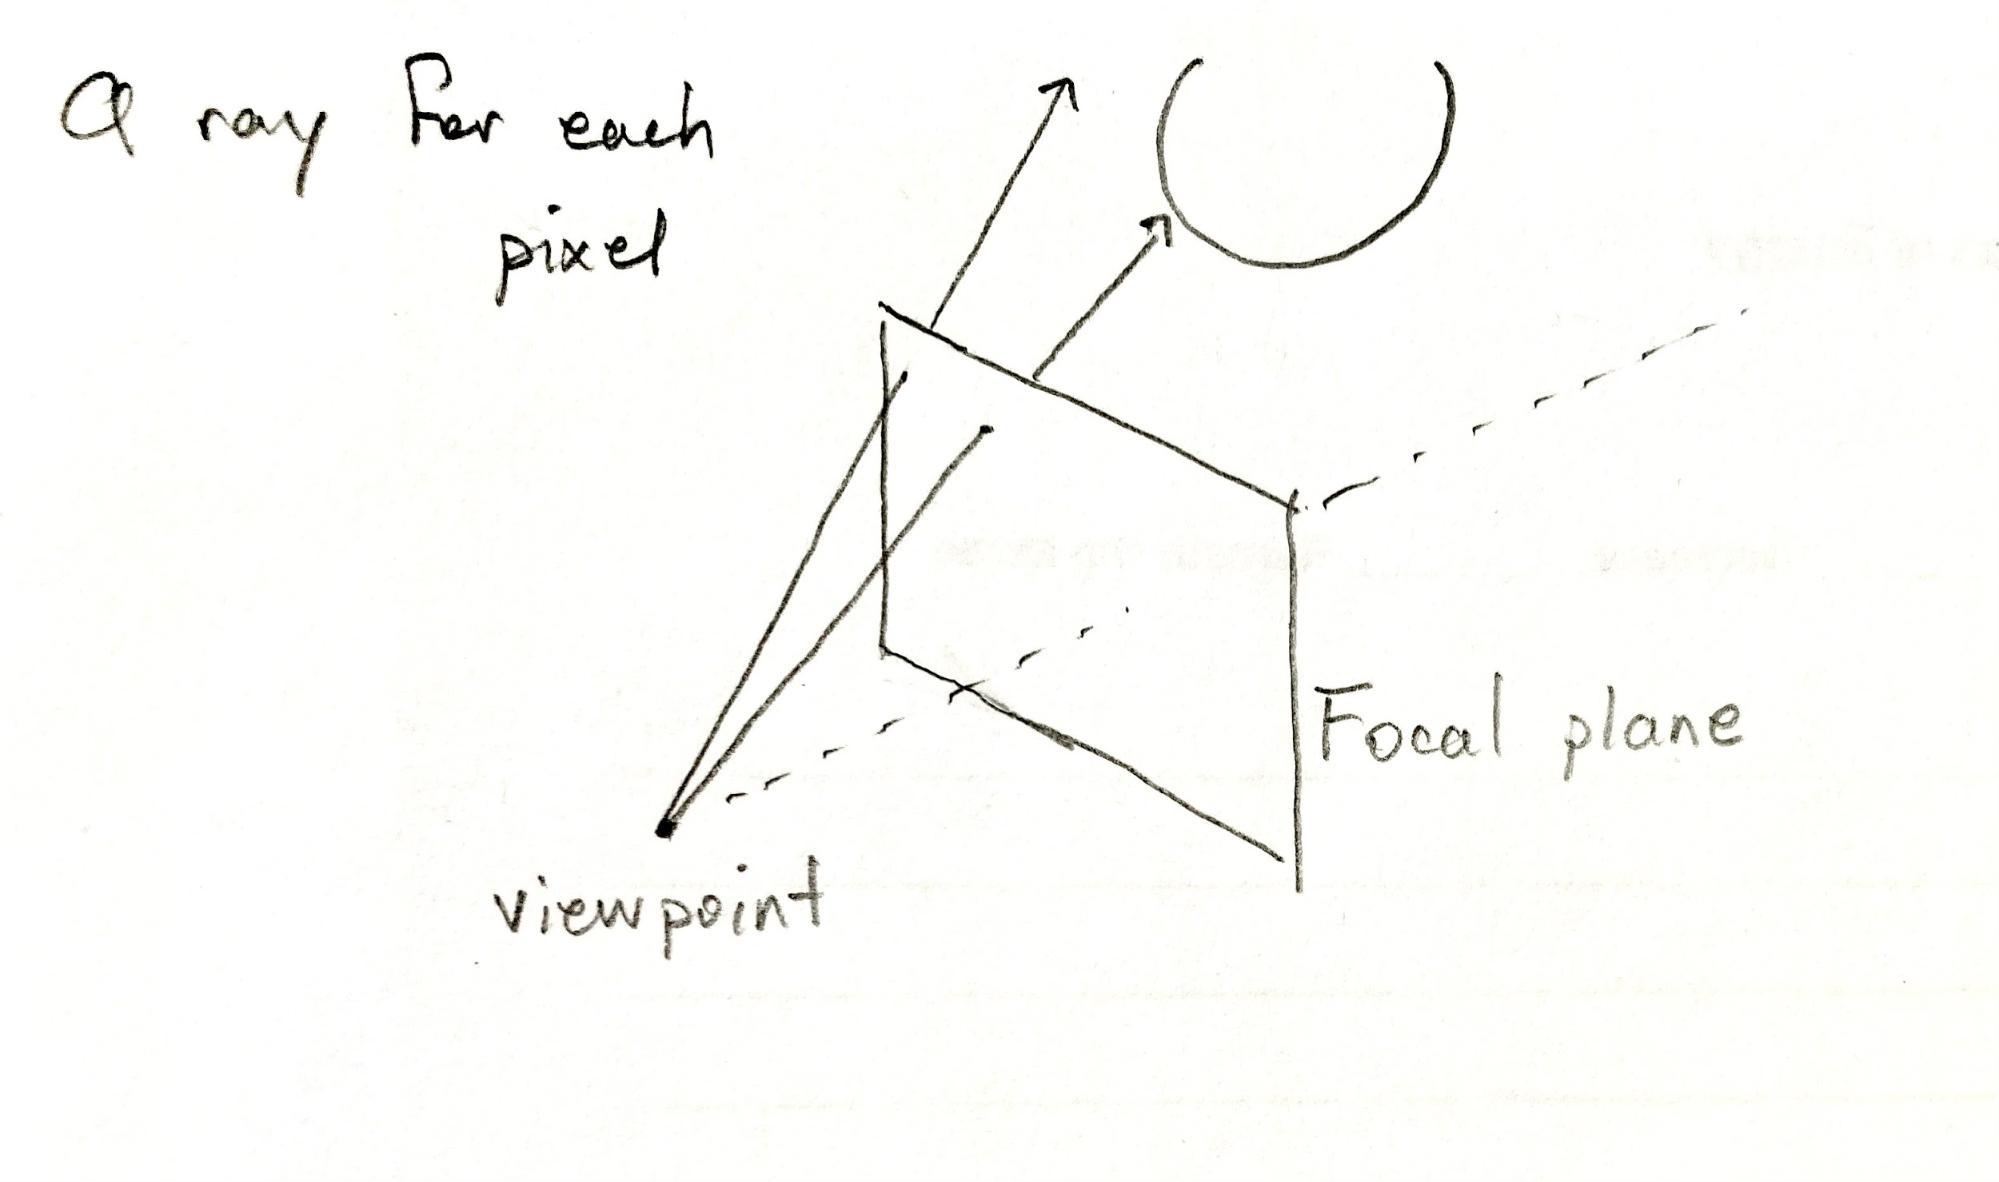 A ray For each
pixel
Focal plane
viewpoint